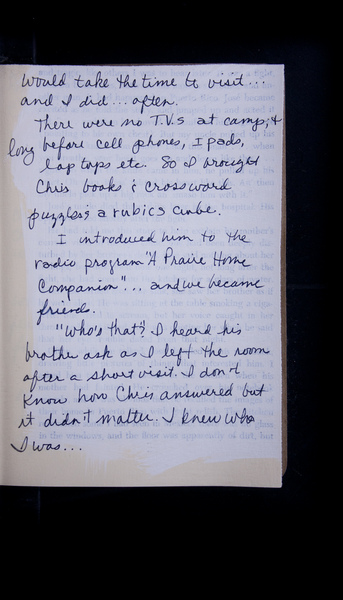 would take the time to visit...
and I did... often.
There were no T.V.s at camp, &
long before cell phones, I pads,
lap tops etc. So I brought
Chris books & crossword
puzzles & a rubics cube.
I introduced him to the
radio program "A Praire Home
Companion"... and we became
friends.
"Who's that"? I heard his
brother ask as I left the room
after a short visit. I don't
know how Chris answered but
it didn't matter. I knew who
I was...
in the windows, and the floor was appreciably of dirt, but